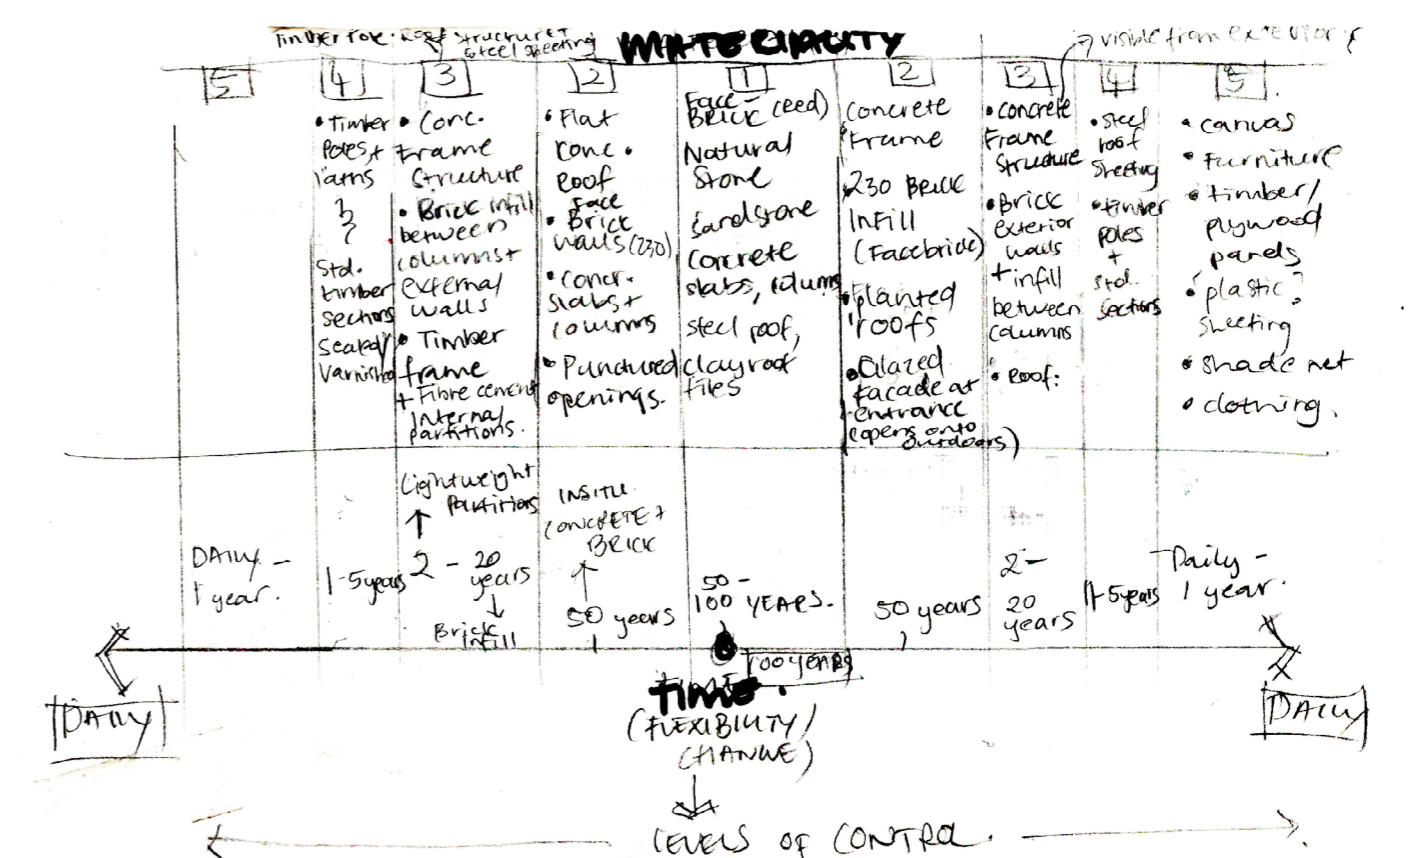 Timber roof structure +
steel sheeting
MATERIALITY
visible from exterior
5
4
• Timber
Poles +
Std.
timber
sections
sealed/
varnished
3
• Conc.
Frame
structure
• Brick infill
between
columns +
external
walls
• Timber
frame
+ Fibre cement
Internal
partitions.
2
• Flat
conc.
roof
• Face
Brick
walls (230)
• Concr.
slabs +
columns
• Punctured
openings.
1
Face-
BRICK (Red)
Natural
Stone
Sandstone
Concrete
slabs, columns
steel roof,
clay roof
tiles
2
Concrete
Frame
230 BRICK
INFILL
(Facebrick)
• Planted
roofs
• Glazed
facade at
entrance
(opens onto
outdoors)
3
• concrete
Frame
structure
• Brick
exterior
walls
+ infill
between
columns
• Roof:
4
• Steel
roof
Sheeting
• timber
poles
+
std.
sections
5
• canvas
• Furniture
• timber/
plywood
panels
• plastic
sheeting
• shade net
• clothing.
DAILY -
1 year.
1-5years
Lightweight
Partitions
2 - 20
years
Brick
infill
INSITU
CONCRETE +
BRICK
50 years
50 -
100 YEARS.
50 years
2 -
20
years
1-5years
Daily -
1 year.
100 YEARS
DAILY
TIME.
DAILY
(FLEXIBILITY/
CHANGE)
LEVELS OF CONTROL.